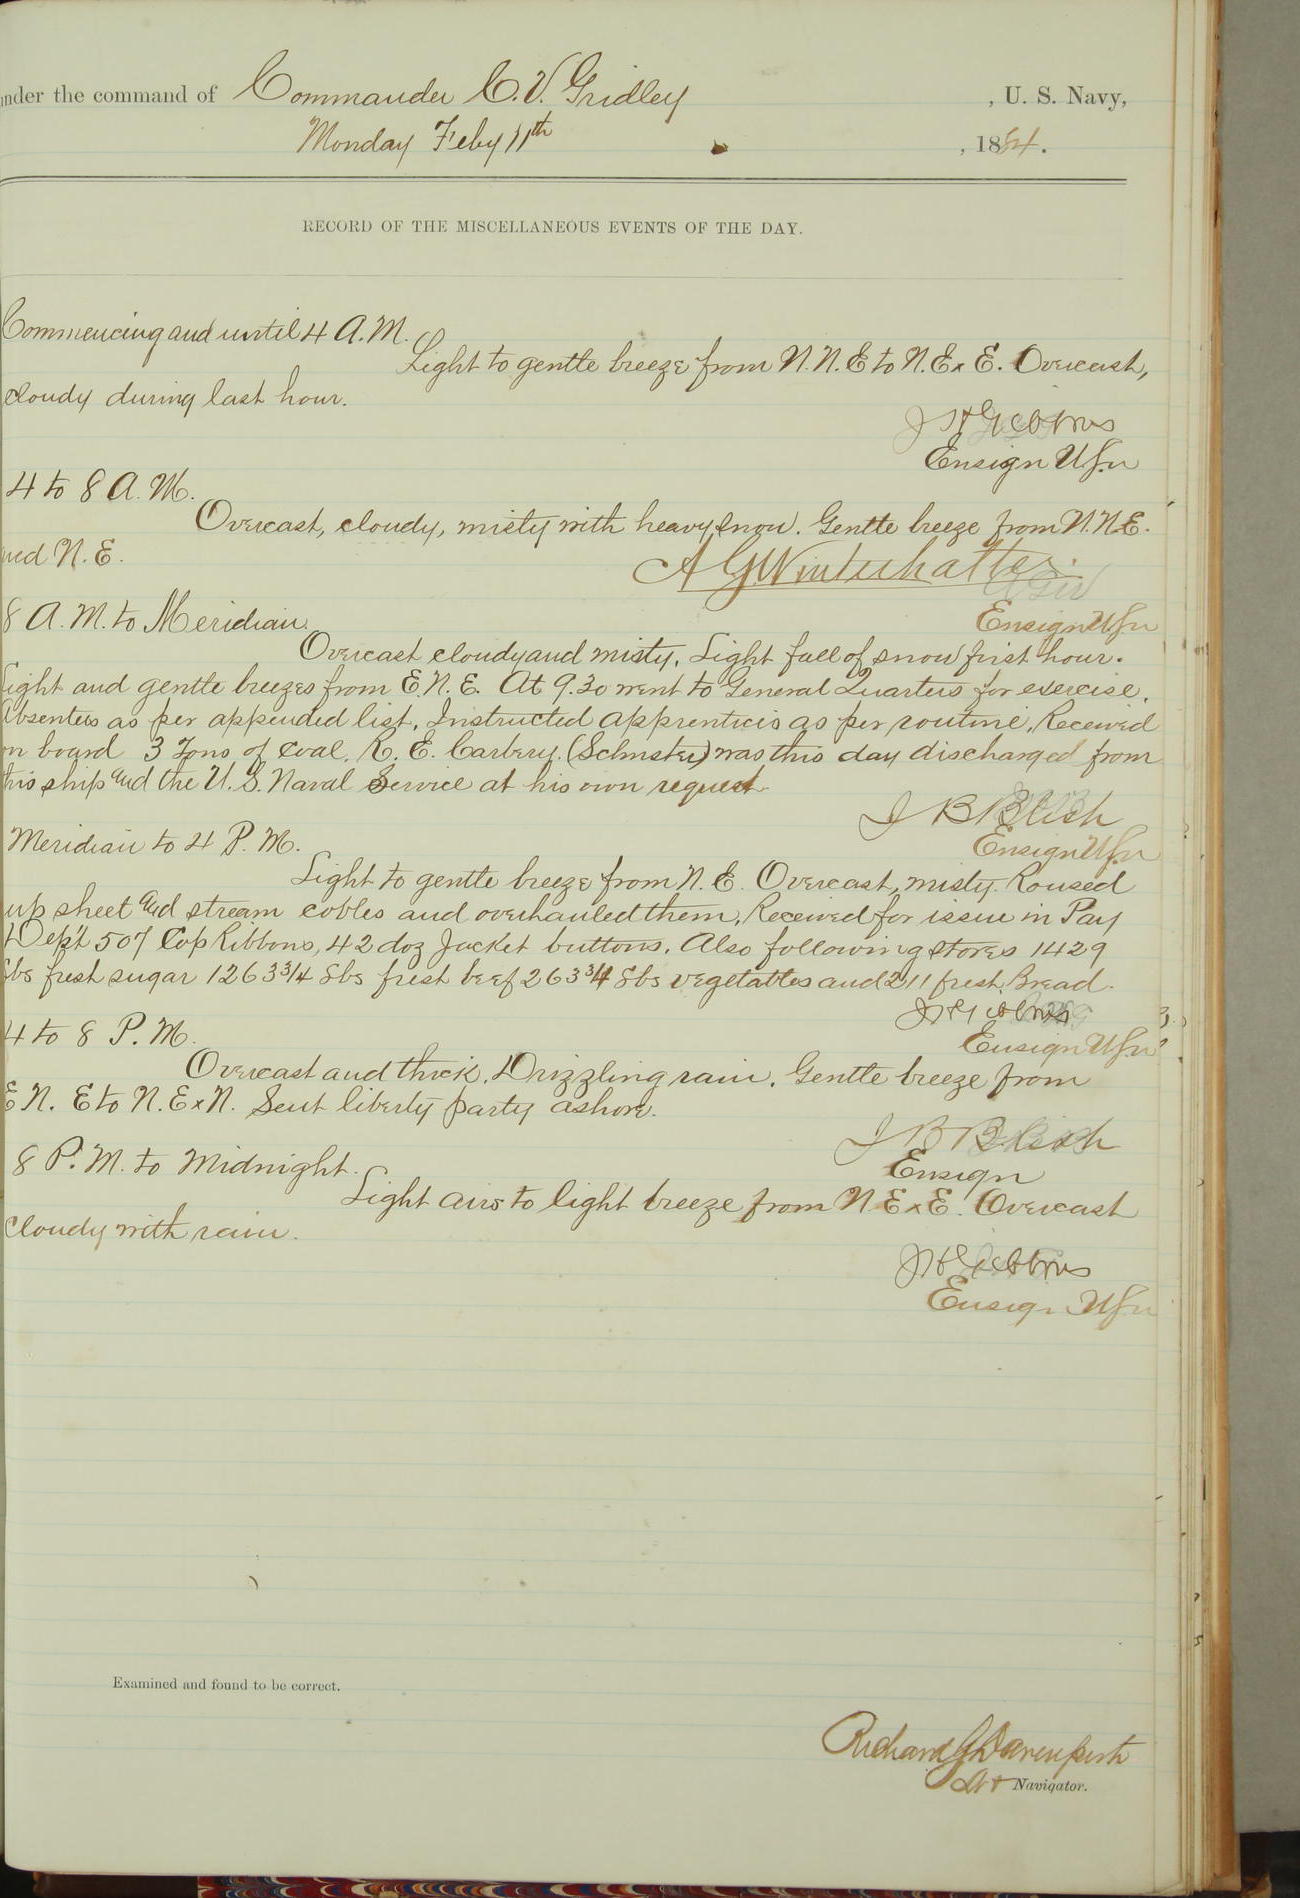 under the command of Commander C. V. Gridley , U. S. Navy,
Monday Feby 11th , 1884.
RECORD OF THE MISCELLANEOUS EVENTS OF THE DAY.
Commencing and until 4 A.M.
Light to gentle breeze from N.N.E to N.E x E. Overcast,
cloudy during last hour.
J H Gibbons
Ensign Usn
4 to 8 A.M.
Overcast, cloudy, misty with heavy snow. Gentle breeze from N.N.E.
and N.E.
A G Winterhalter.
Ensign Usn
8 A.M. to Meridian
Overcast cloudy and misty. Light fall of snow first hour.
Light and gentle breezes from E.N.E. At 9.30 went to General Quarters for exercise.
Absentees as per appended list. Instructed apprentices as per routine. Received
on board 3 Tons of coal. R. E. Carbery. (Schmster) was this day discharged from
this ship and the U.S. Naval Service at his own request.
J B Blish
Ensign Usn
Meridian to 4 P.M.
Light to gentle breeze from N.E. Overcast, misty. Roused
up sheet and stream cables and overhauled them. Received for issue in Pay
Dep't 507 Cap Ribbons, 42 doz Jacket buttons. Also following stores 1429
lbs fresh sugar 1263 3/4 lbs fresh beef 263 3/4 lbs vegetables and 211 fresh Bread.
J H Gibbons
Ensign Usn
4 to 8 P.M.
Overcast and thick. Drizzling rain. Gentle breeze from
E N. E to N.E x N. Sent liberty party ashore.
J B Blish
Ensign
8 P.M. to Midnight.
Light airs to light breeze from N E x E. Overcast
cloudy with rain.
J H Gibbons
Ensign Usn
Examined and found to be correct.
Richard G Davenport
Lt & Navigator.